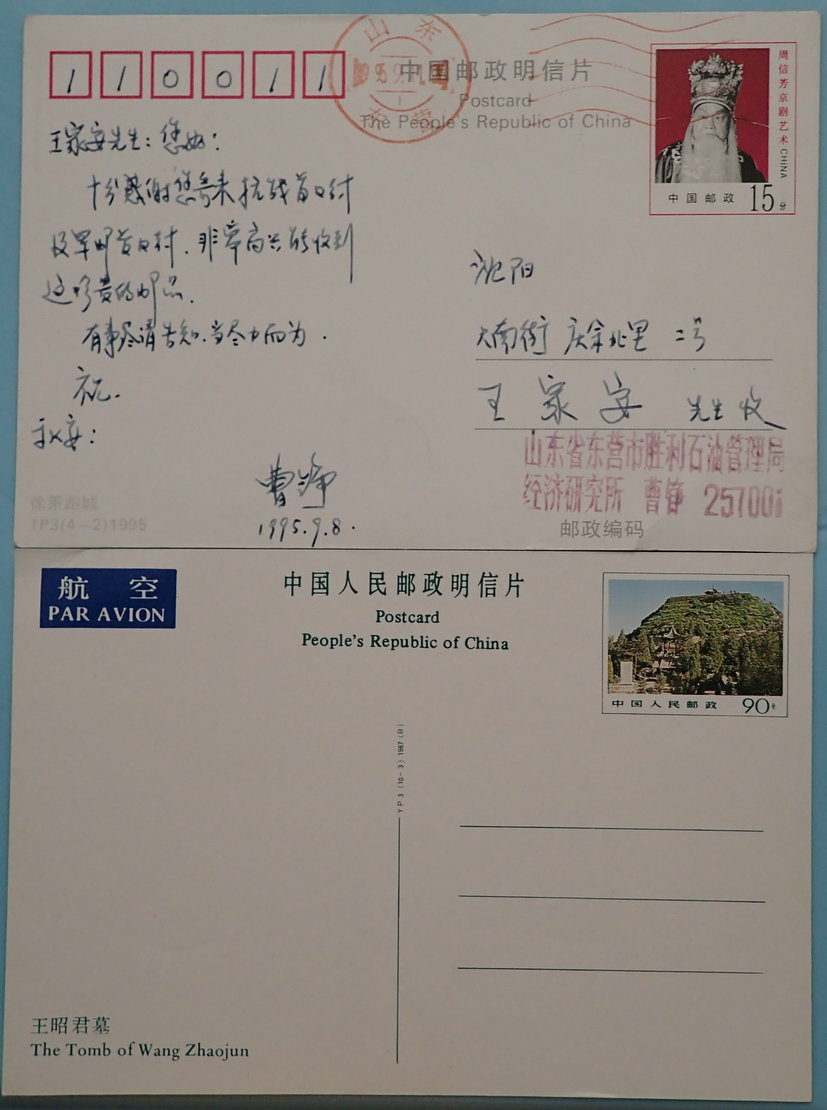 110011
山东
中国邮政明信片
Postcard
The People's Republic of China
周信芳京剧艺术 CHINA
中国邮政 15分
王家安先生：您好！
十分感谢您寄来抗战首日封
及军邮首日封，非常高兴能收到
这珍贵的邮品。
有事尽请告知，当尽力而为。
祝
秋安！
曹铮
1995.9.8.
沈阳
大南街 庆余北里 二号
王家安 先生收
山东省东营市胜利石油管理局
经济研究所 曹铮 257001
邮政编码
徐策跑城
TP3(4-2)1995
航空
PAR AVION
中国人民邮政明信片
Postcard
People's Republic of China
中国人民邮政 90分
YP3 (10-3) 1987 (B)
王昭君墓
The Tomb of Wang Zhaojun